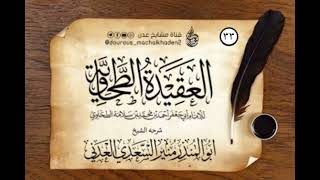 ٣٣
قناة مشايخ عدن
@dourous_machaikhaden2
العقيدة الطحاوية
للإمام أبي جعفر أحمد بن محمد بن سلامة الطحاوي
شرحه الشيخ
أبو المنذر منير السعدي العدني